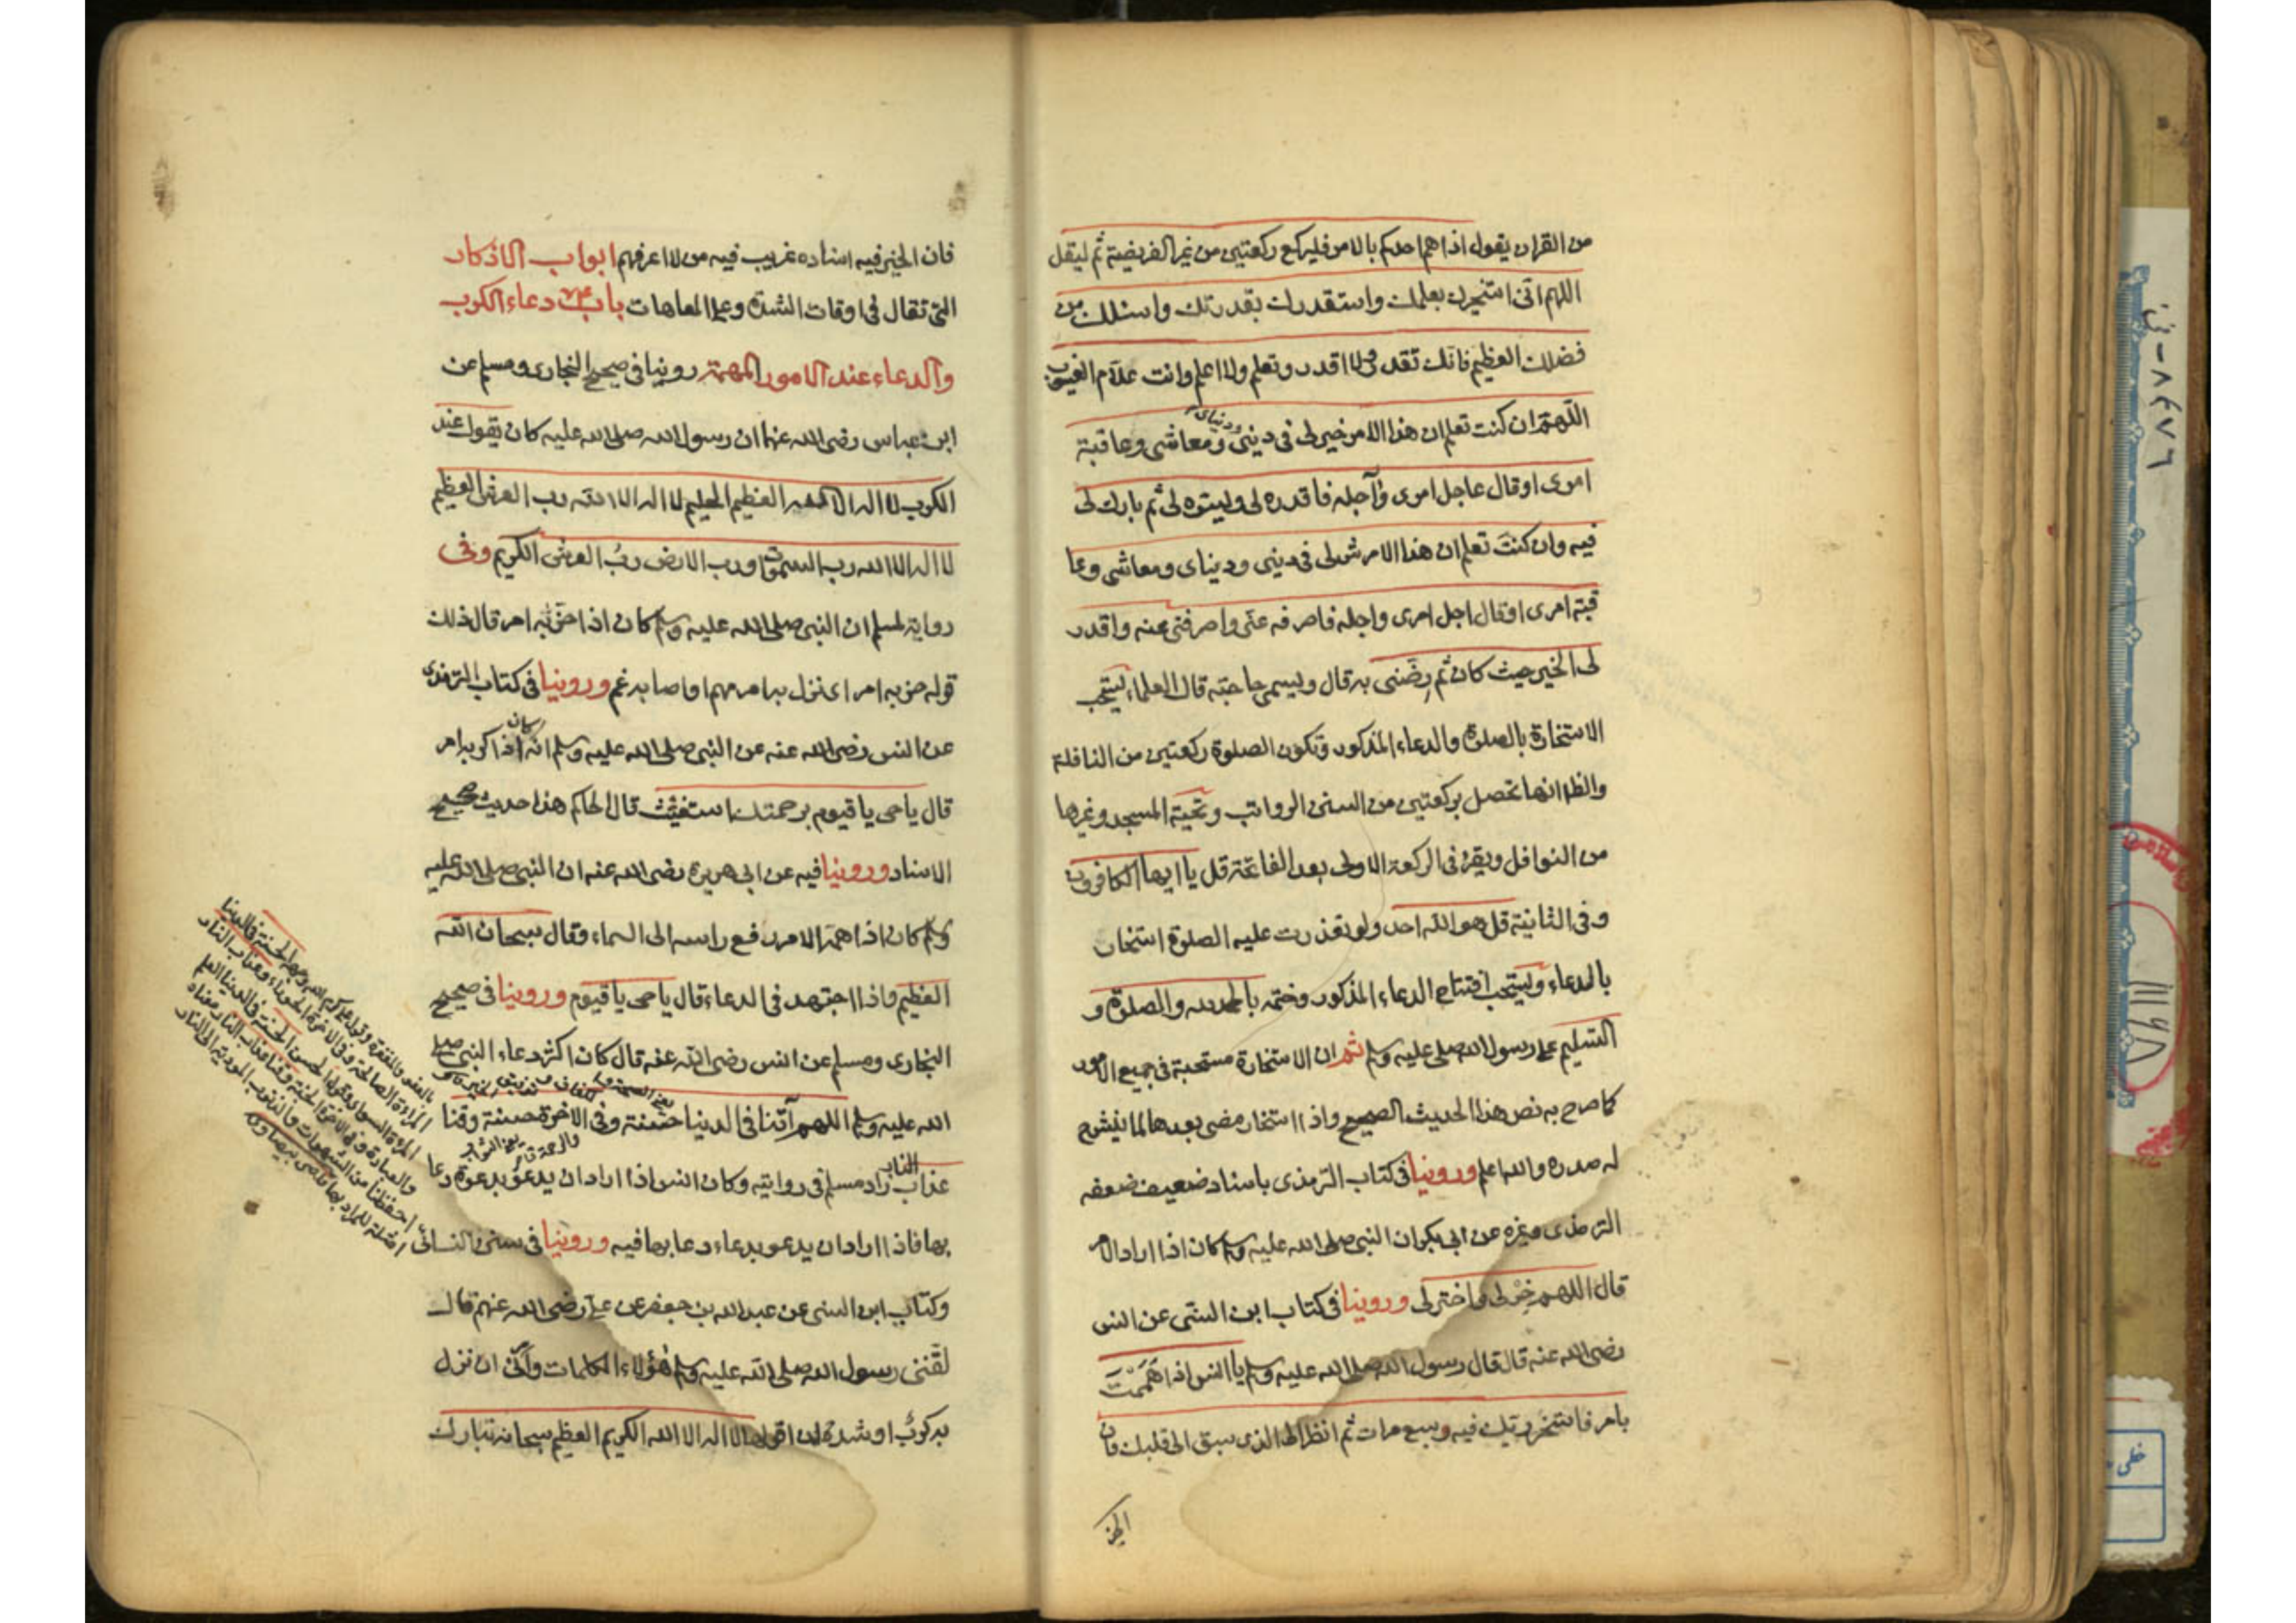 من القران يقول اذا هم احدكم بالامر فليركع ركعتين من غير الفريضة ثم ليقل
اللهم انى استخيرك بعلمك واستقدرك بقدرتك واسئلك من
فضلك العظيم فانك تقدر ولا اقدر وتعلم ولا اعلم وانت علام الغيوب
اللهم ان كنت تعلم ان هذا الامر خير لى فى دينى ودنياى ومعاشى وعاقبة
امرى او قال عاجل امرى وآجله فاقدره لى وليتره لى ثم بارك لى
فيه وان كنت تعلم ان هذا الامر شر لى فى دينى ودنياى ومعاشى وعا
قبة امرى او قال اجل امرى واجله فاصرفه عنى واصرفنى عنه واقدر
لى الخير حيث كان ثم رضنى به قال ويسمى حاجته قال العلماء يستحب
الاستخارة بالصلوة والدعاء المذكور وتكون الصلوة ركعتين من النافلة
والظ انها تحصل بركعتين من السنن الرواتب وتحية المسجد وغيرها
من النوافل ويقرء فى الركعة الاولى بعد الفاتحة قل يا ايها الكافرون
وفى الثانية قل هو الله احد ولو تعذرت عليه الصلوة استخار
بالدعاء ويستحب افتتاح الدعاء المذكور وختمه بالحمد لله والصلوة و
التسليم على رسول الله صلى عليه وسلم ثم ان الاستخارة مستحبة فى جميع الامور
كما صرح به نص هذا الحديث الصحيح واذا استخار مضى بعدها لما ينشرح
له صدره والله اعلم وروينا فى كتاب الترمذى باسناد ضعيف ضعفه
الترمذى وغيره عن ابى بكر ان النبى صلى الله عليه وسلم كان اذا اراد الامر
قال اللهم خر لى واختر لى وروينا فى كتاب ابن السنى عن انس
رضى الله عنه قال قال رسول الله صلى الله عليه وسلم يا انس اذا هممت
بامر فاستخر ربك فيه وسبع مرات ثم انظر الى الذى سبق الى قلبك فان
الخير
فان الخير فيه اسناده غريب فيه من لا اعرفهم ابواب الاذكار
التى تقال فى اوقات الشدة وعلى العاهات باب دعاء الكرب
والدعاء عند الامور المهمة روينا فى صحيح البخارى ومسلم عن
ابن عباس رضى الله عنهما ان رسول الله صلى الله عليه كان يقول عند
الكرب لا اله الا الله العظيم الحليم لا اله الا الله رب العرش العظيم
لا اله الا الله رب السموات ورب الارض رب العرش الكريم وفى
رواية لمسلم ان النبى صلى الله عليه وسلم كان اذا حزبه امر قال ذلك
قوله حزبه امر اى نزل به امر مهم او اصابه غم وروينا فى كتاب الترمذى
عن انس رضى الله عنه عن النبى صلى الله عليه وسلم انه كان اذا اكربه امر
قال يا حى يا قيوم برحمتك استغيث قال الحاكم هذا حديث صحيح
الاسناد وروينا فيه عن ابى هريرة رضى الله عنه ان النبى صلى الله عليه
وسلم كان اذا اهمه الامر رفع راسه الى السماء وقال سبحان الله
العظيم واذا اجتهد فى الدعاء قال يا حى يا قيوم وروينا فى صحيح
البخارى ومسلم عن انس رضى الله عنه قال كان اكثر دعاء النبى صلى
الله عليه وسلم اللهم آتنا فى الدنيا حسنة وفى الاخرة حسنة وقنا
عذاب النار زاد مسلم فى روايته وكان انس اذا اراد ان يدعو بدعوة دعا
بها فاذا اراد ان يدعو بدعاء دعا بها فيه وروينا فى سنن النسائى
وكتاب ابن السنى عن عبد الله بن جعفر عن على رضى الله عنهم قال
لقننى رسول الله صلى الله عليه وسلم هؤلاء الكلمات وامرنى ان نزل
بى كرب او شدة ان اقولها لا اله الا الله الكريم العظيم سبحانه تبارك
المرءة الصالحة وفى الاخرة الحوراء وعذاب النار
المرءة السوء وقول الحسن الحسنة فى الدنيا العلم
والعبادة وفى الاخرة الجنة وقنا عذاب النار معناه
احفظنا من الشهوات والذنوب المودية الى النار
٨٤٧٦
١١١٩٨
خطى